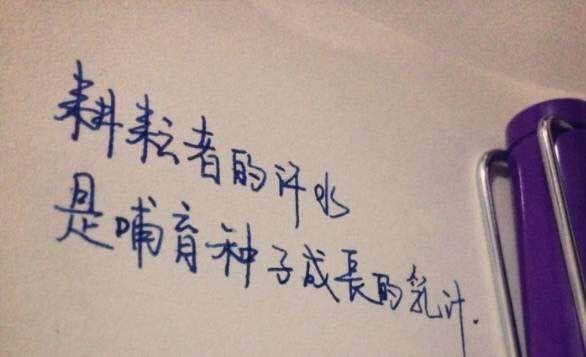 耕耘者的汗水
是哺育种子成長的乳汁.